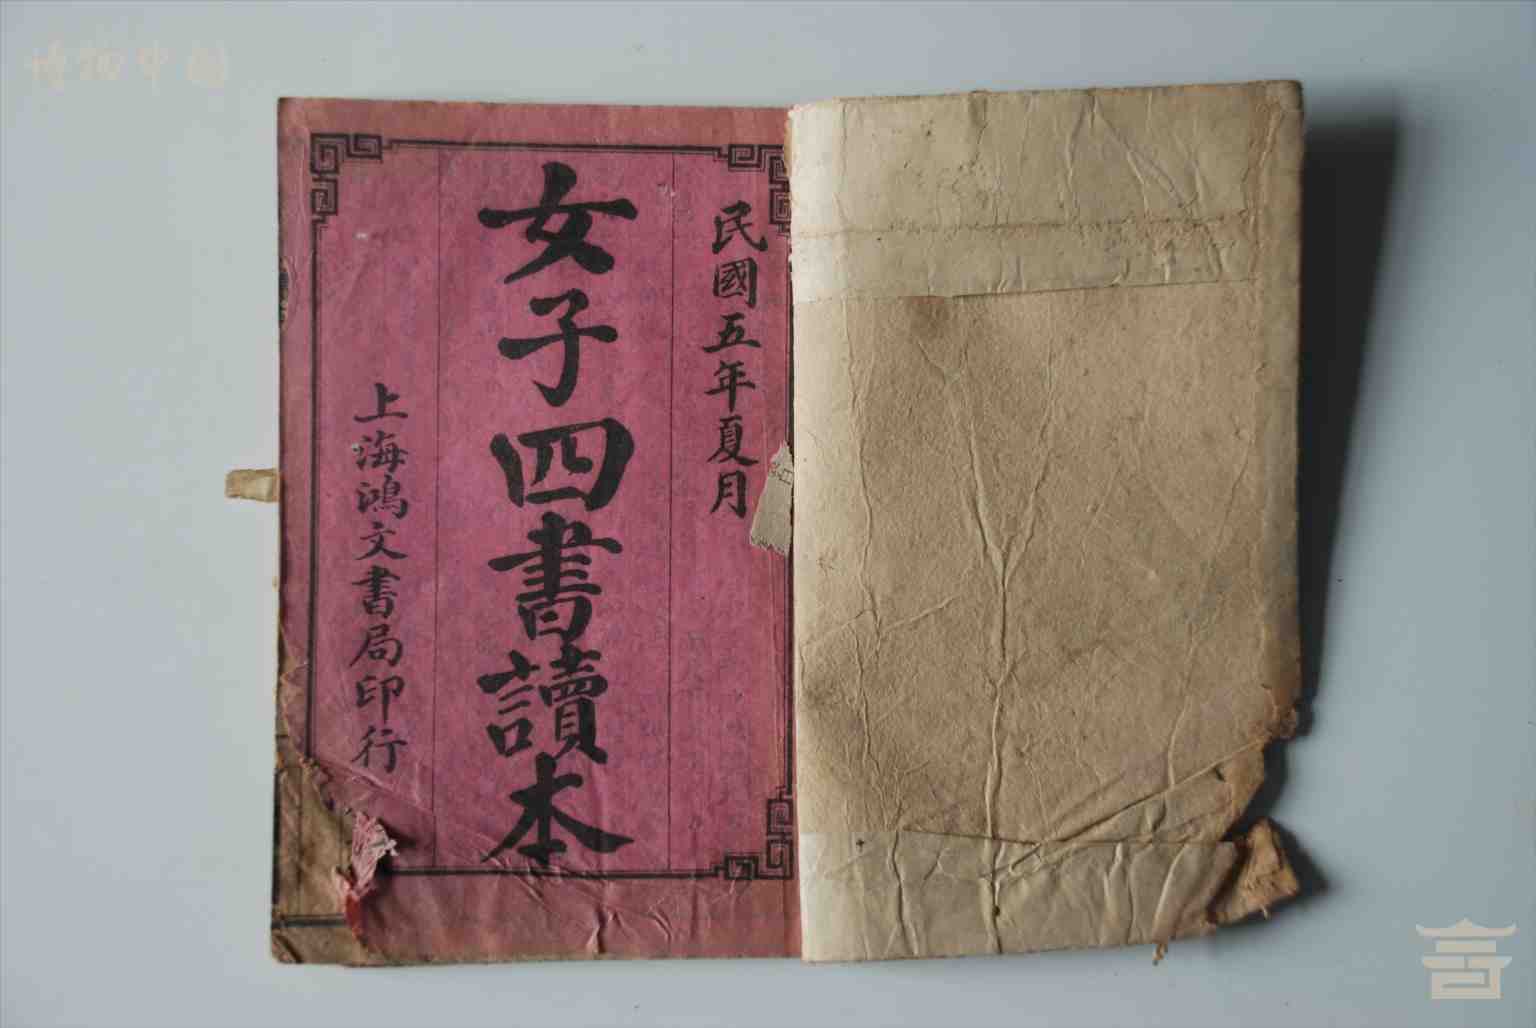 博物中国
民國五年夏月
女子四書讀本
上海鴻文書局印行